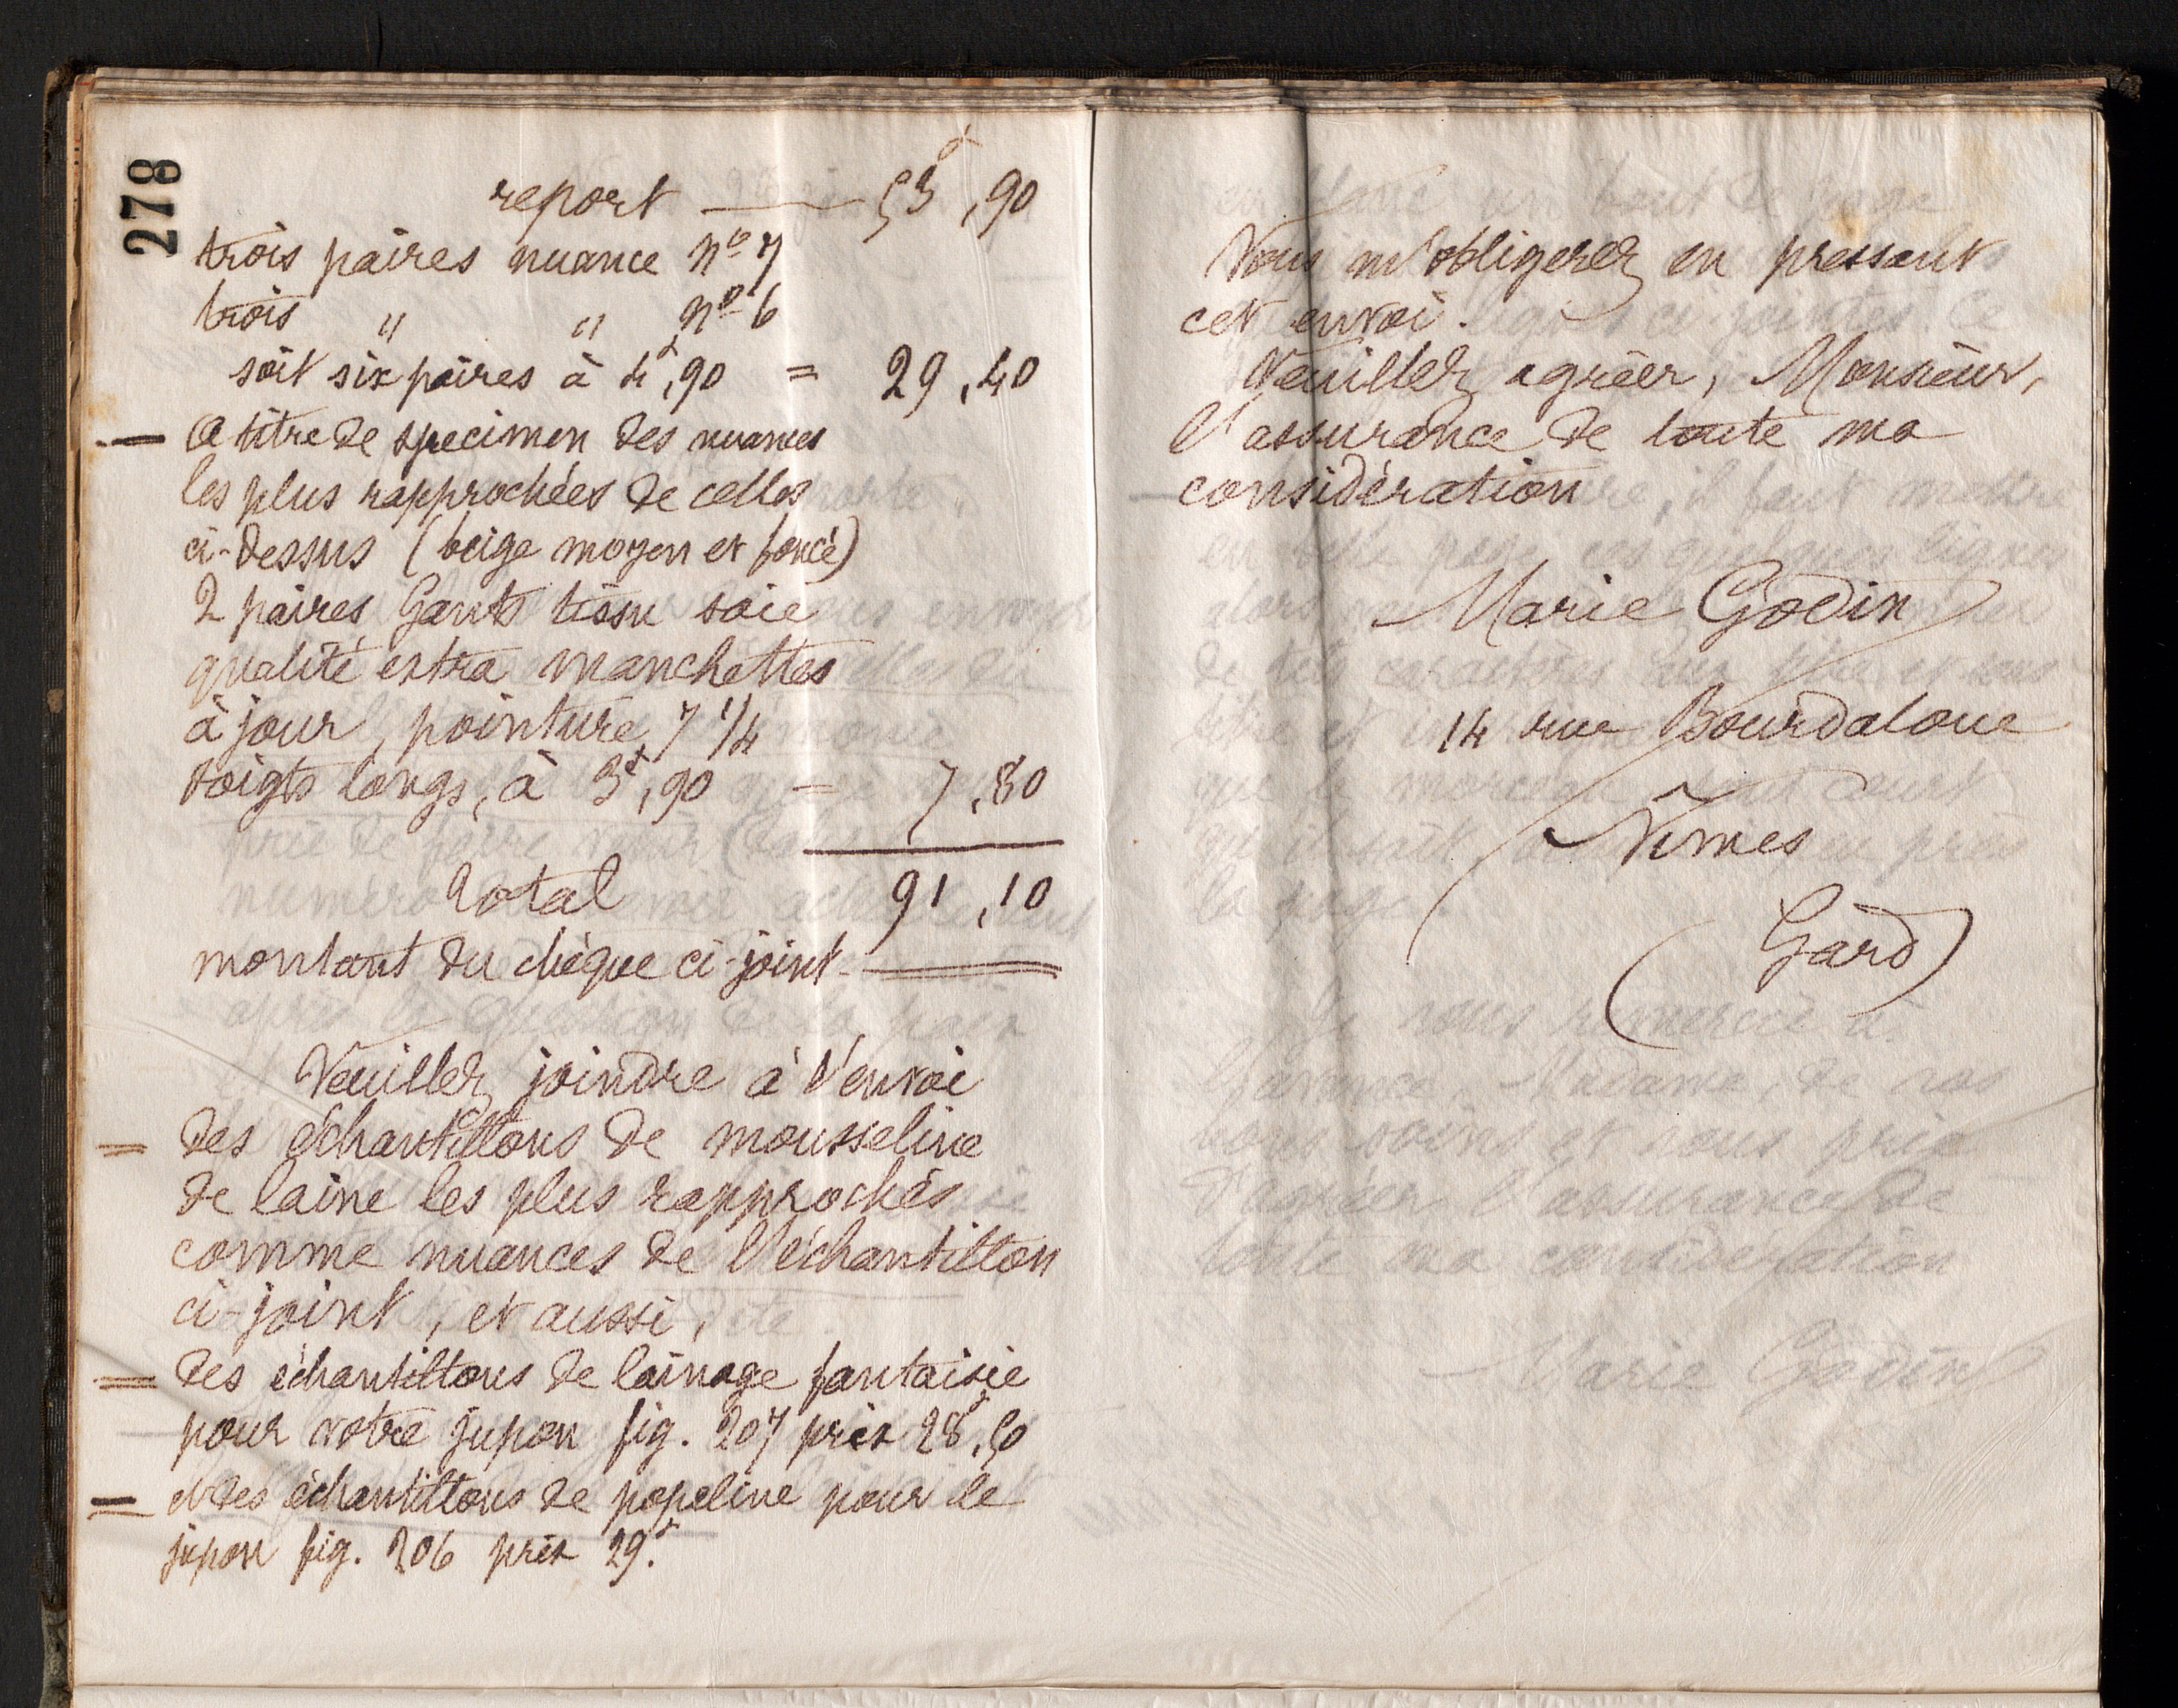 278
report — 53f,90
trois paires nuance nº 7
trois " " nº 6
soit six paires à 4f,90 = 29,40
— A titre de specimen des nuances
les plus rapprochées de celles
ci-dessus (beige moyen et foncé)
2 paires Gants tissu soie
qualité extra manchettes
à jour, pointure 7 1/4
doigts longs, à 3f,90 = 7,80
Total 91,10
montant du chèque ci-joint
Veuillez joindre à l'envoi
= des échantillons de mousseline
de laine les plus rapprochés
comme nuances de l'échantillon
ci-joint, et aussi,
= des échantillons de lainage fantaisie
pour votre jupon fig. 207 prix 28f,50
= et des échantillons de popeline pour le
jupon fig. 206 prix 29f.
Vous m'obligerez en pressant
cet envoi.
Veuillez agréer, Monsieur,
l'assurance de toute ma
considération
Marie Godin
14 rue Bourdaloue
Nîmes
(Gard)